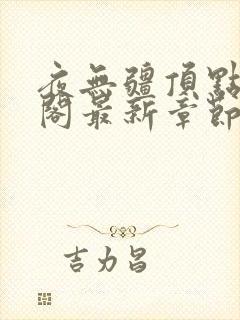 夜無疆頂點
閣最新章節
吉力昌